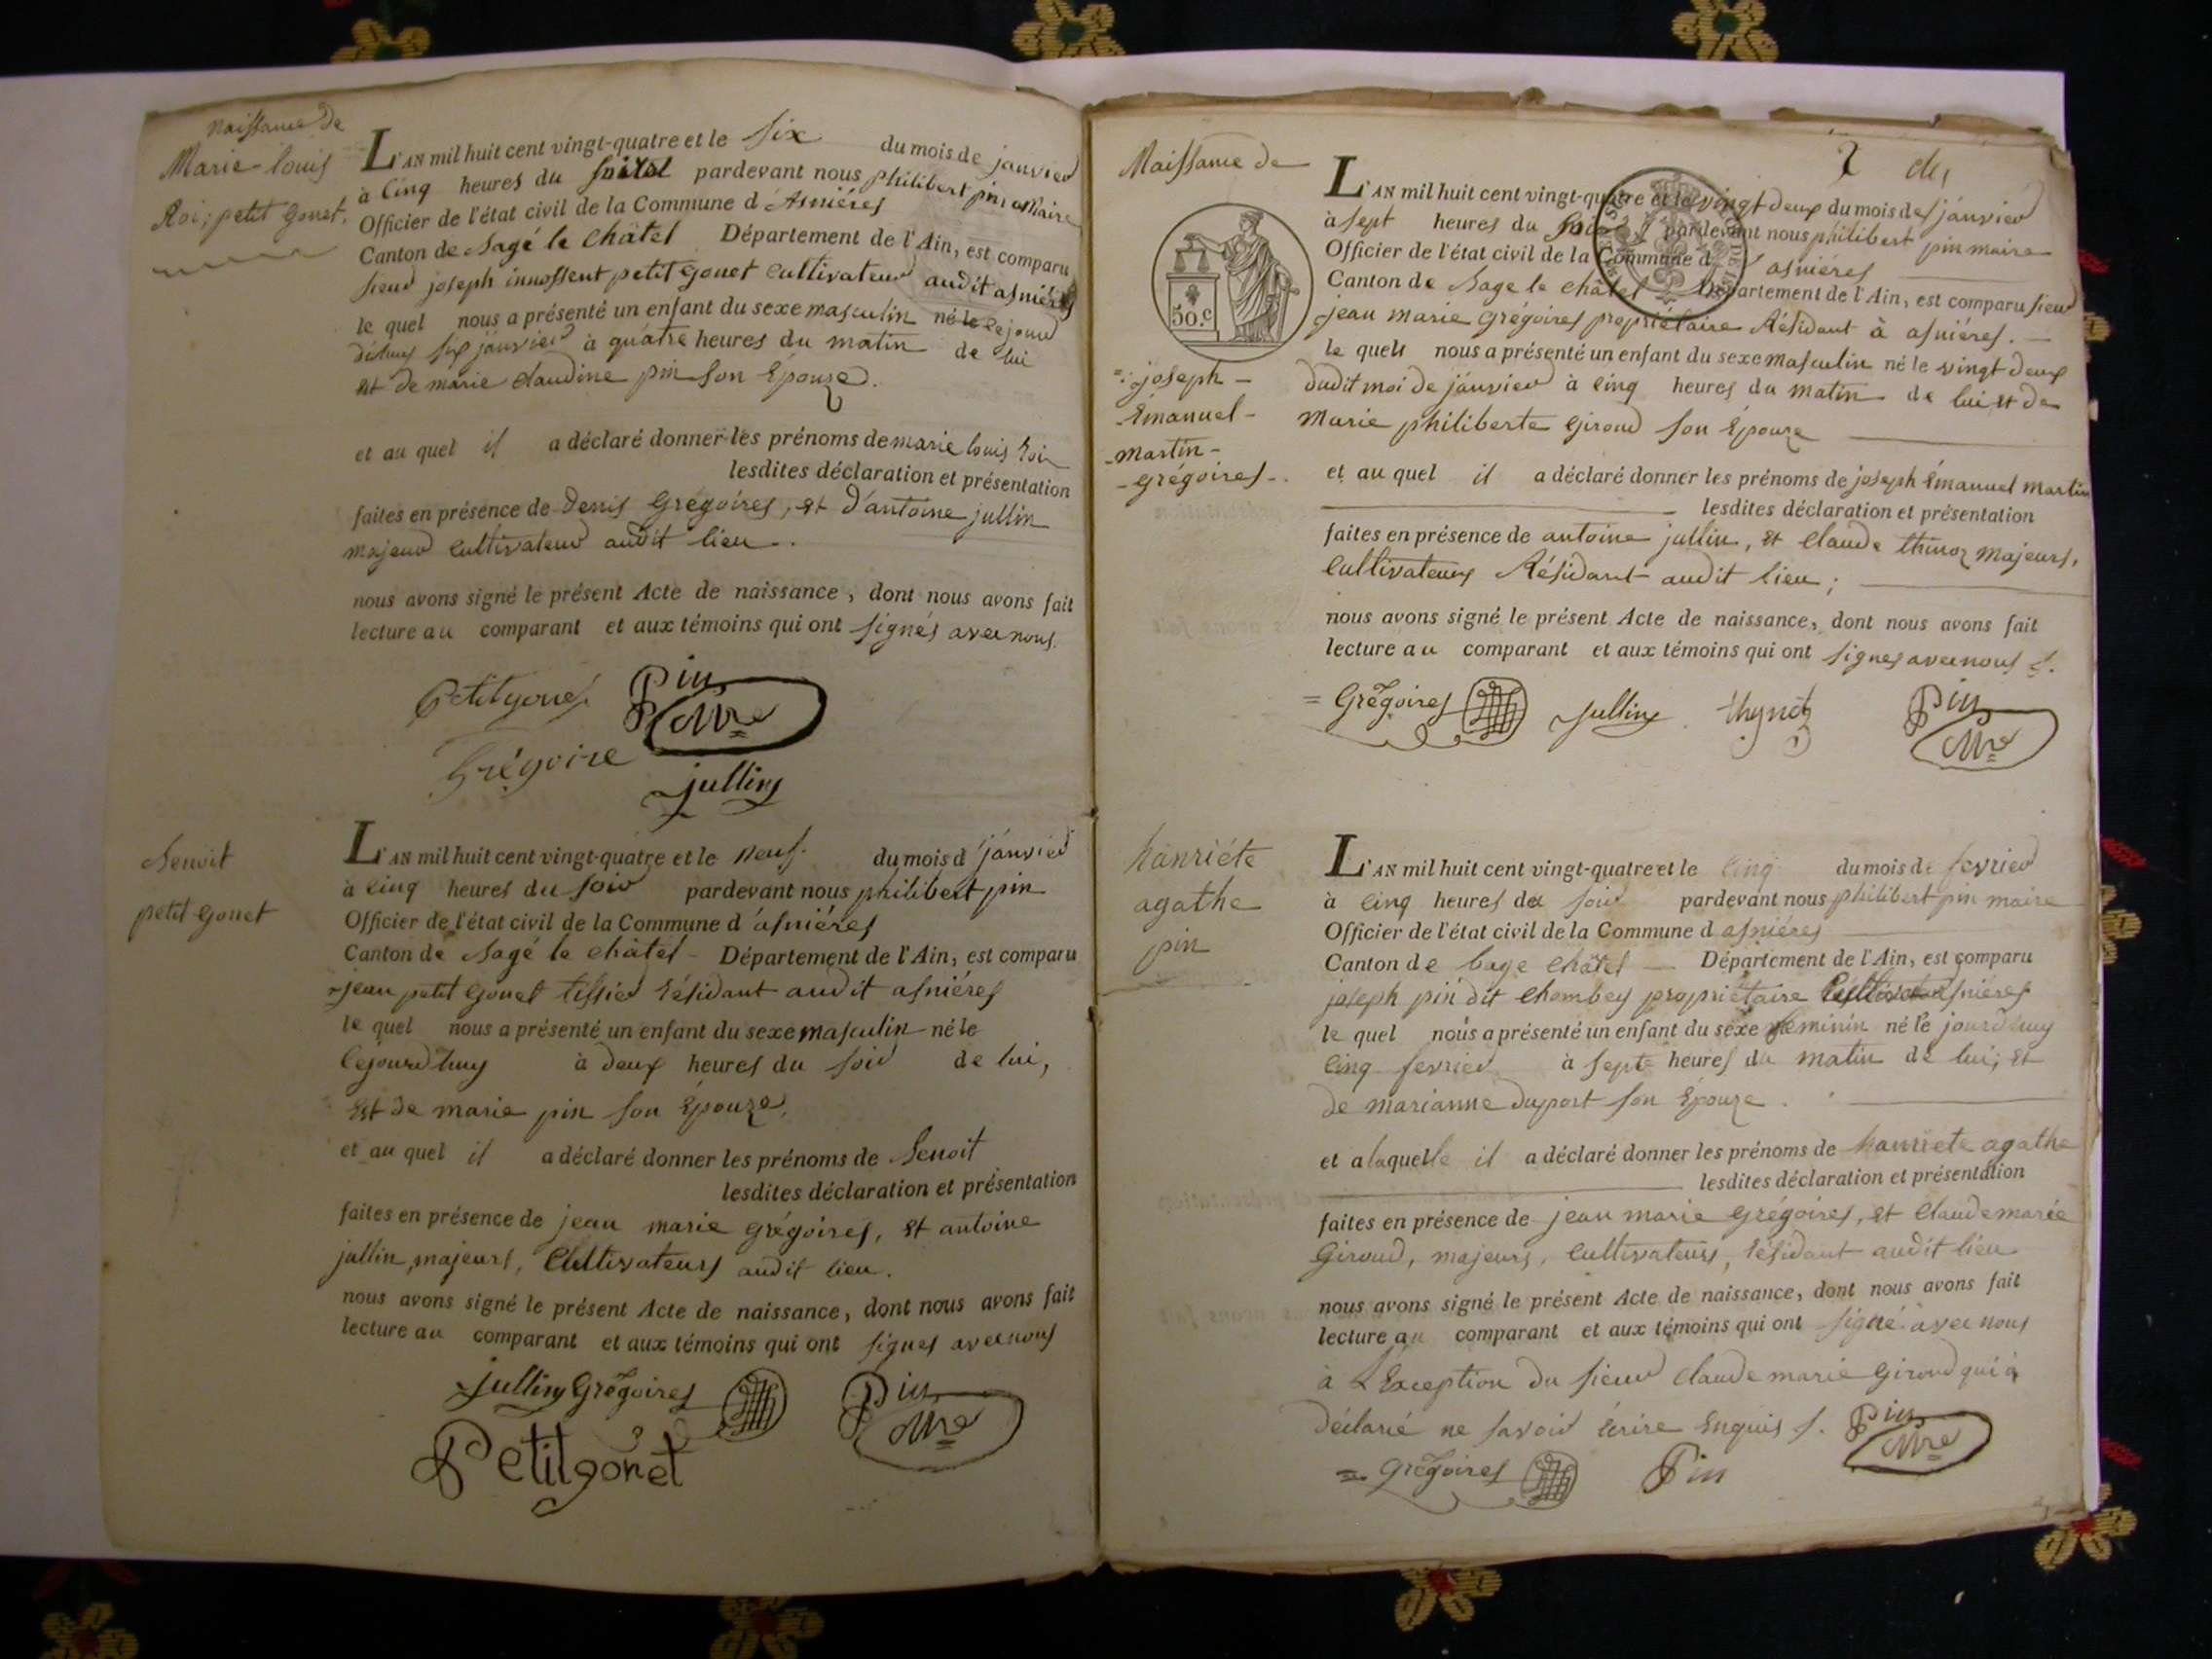 Naissance de
Marie louis
Roi, petit gonet.
L'AN mil huit cent vingt-quatre et le six du mois de janvier
à cinq heures du pardevant nous philibert pin maire
Officier de l'état civil de la Commune d'Asniéres
Canton de Bagé le Châtel Département de l'Ain, est comparu
sieur joseph innossent petit gonet cultivateur audit asniéres
le quel nous a présenté un enfant du sexe masculin né le cejourd
dhuy six janvier à quatre heures du matin de lui
et de marie claudine pin son Épouze.
et au quel il a déclaré donner les prénoms de marie louis Roi
lesdites déclaration et présentation
faites en présence de Denis Grégoires, et d'antoine jullin
majeur cultivateur audit lieu.
nous avons signé le présent Acte de naissance, dont nous avons fait
lecture au comparant et aux témoins qui ont signés avec nous.
Petitgonet Pin
Mre
Grégoire
jullin
Benoit
petit gonet
L'AN mil huit cent vingt-quatre et le neuf du mois d janvier
à cinq heures du soir pardevant nous philibert pin
Officier de l'état civil de la Commune d'asniéres
Canton de Bagé le châtel - Département de l'Ain, est comparu
jean petit gonet tissier résidant audit asniéres
le quel nous a présenté un enfant du sexe masculin né le
cejourdhuy à deux heures du soir de lui,
et de marie pin son épouze,
et au quel il a déclaré donner les prénoms de Benoit
lesdites déclaration et présentation
faites en présence de jean marie grégoires, et antoine
jullin, majeurs, cultivateurs audit lieu.
nous avons signé le présent Acte de naissance, dont nous avons fait
lecture au comparant et aux témoins qui ont signes avec nous
jullin Grégoires Pin
Mre
Petitgonet
2 de,
Naissance de
50.c
joseph -
Émanuel -
- martin -
- grégoires -
L'AN mil huit cent vingt-quatre et le vingt deux du mois de janvier
à sept heures du soir pardevant nous philibert pin maire
Officier de l'état civil de la Commune d' asniéres
Canton de Bage le châtel Département de l'Ain, est comparu sieur
jean marie grégoires propriétaire Résidant à asniéres.
le quel nous a présenté un enfant du sexe masculin né le vingt deux
dudit moi de janvier à cinq heures du matin de lui et de
marie philiberte giroud son épouze
et au quel il a déclaré donner les prénoms de joseph Émanuel martin
lesdites déclaration et présentation
faites en présence de antoine jullin, et claude thinoz majeurs,
cultivateurs Résidant audit lieu;
nous avons signé le présent Acte de naissance, dont nous avons fait
lecture au comparant et aux témoins qui ont signes avec nous
= Grégoires jullin thynoz Pin
Mre
hanriéte
agathe
pin
L'AN mil huit cent vingt-quatre et le cinq du mois de fevrier
à cinq heures du soir pardevant nous philibert pin maire
Officier de l'état civil de la Commune d asniéres
Canton de bage châtel Département de l'Ain, est comparu
joseph pin dit chombey propriétaire asniéres
le quel nous a présenté un enfant du sexe feminin né le jourdhuy
cinq fevrier à sept heures du matin de lui; et
de marianne duport son épouze.
et a laquelle il a déclaré donner les prénoms de hanriete agathe
lesdites déclaration et présentation
faites en présence de jean marie grégoires, et claude marie
Giroud, majeurs, cultivateurs, résidant audit lieu
nous avons signé le présent Acte de naissance, dont nous avons fait
lecture au comparant et aux témoins qui ont signé avec nous
à L'Exception du sieur claude marie giroud qui a
déclaré ne savoir écrire Enquis
Pin
Mre
= grégoires Pin